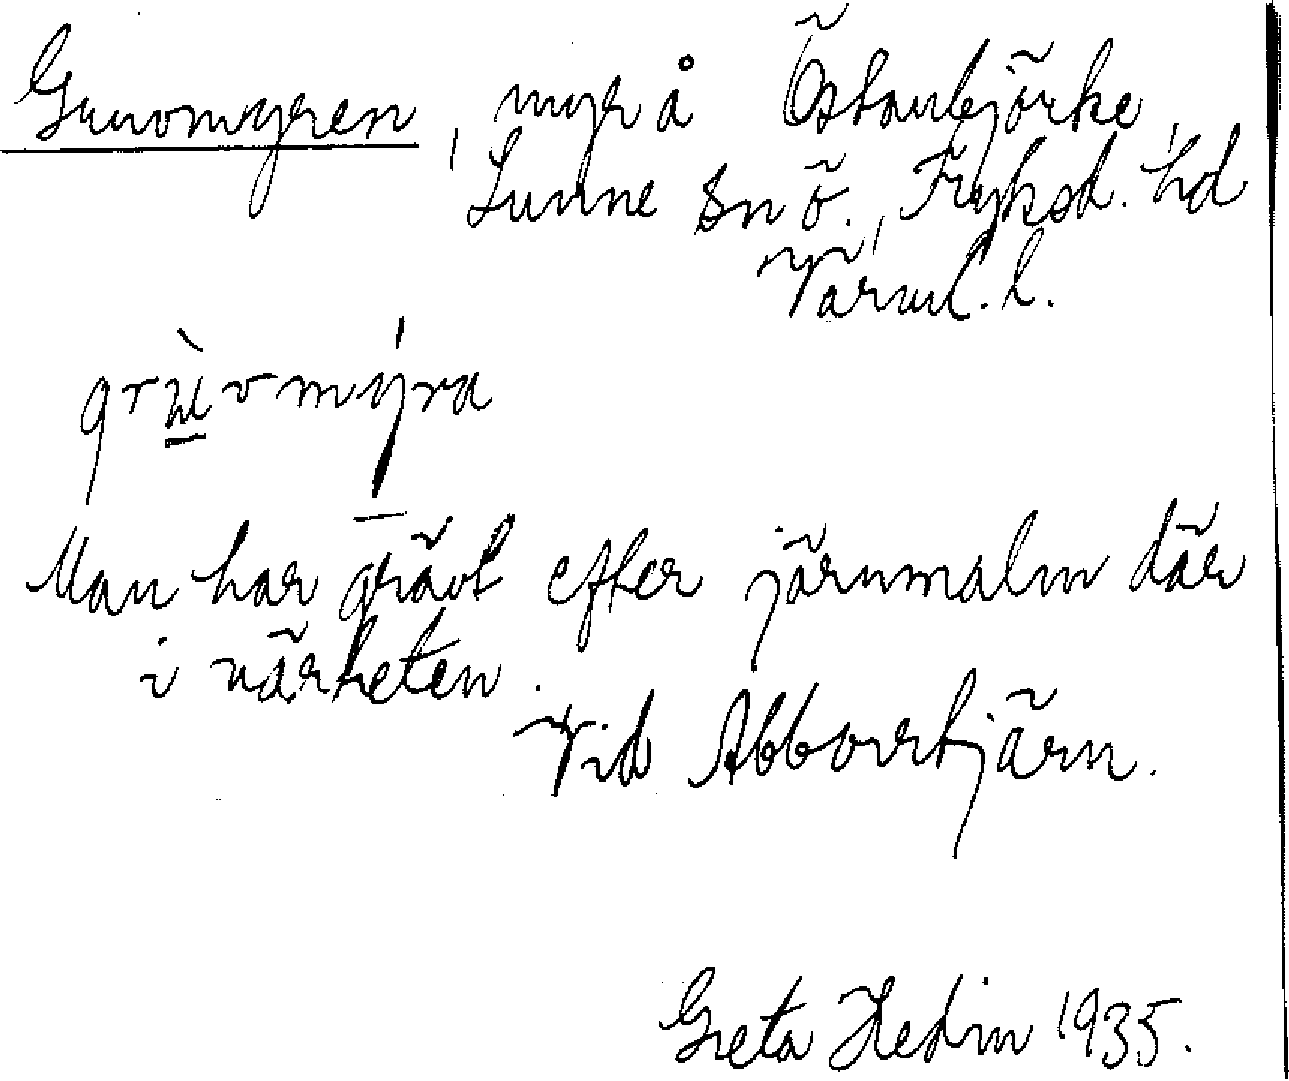 Gruvmyren, myr å Östanbjörke,
Sunne sn ö., Fryksd. hd
Värml. l.
grùvmýra
Man har grävt efter järnmalm där
i närheten.
Vid Abborrtjärn.
Greta Hedin 1935.